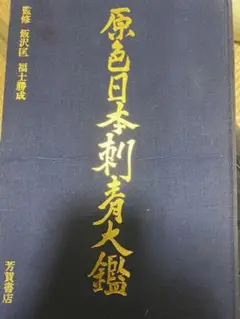 原色日本刺青大鑑
監修 飯沢匡 福士勝成
芳賀書店